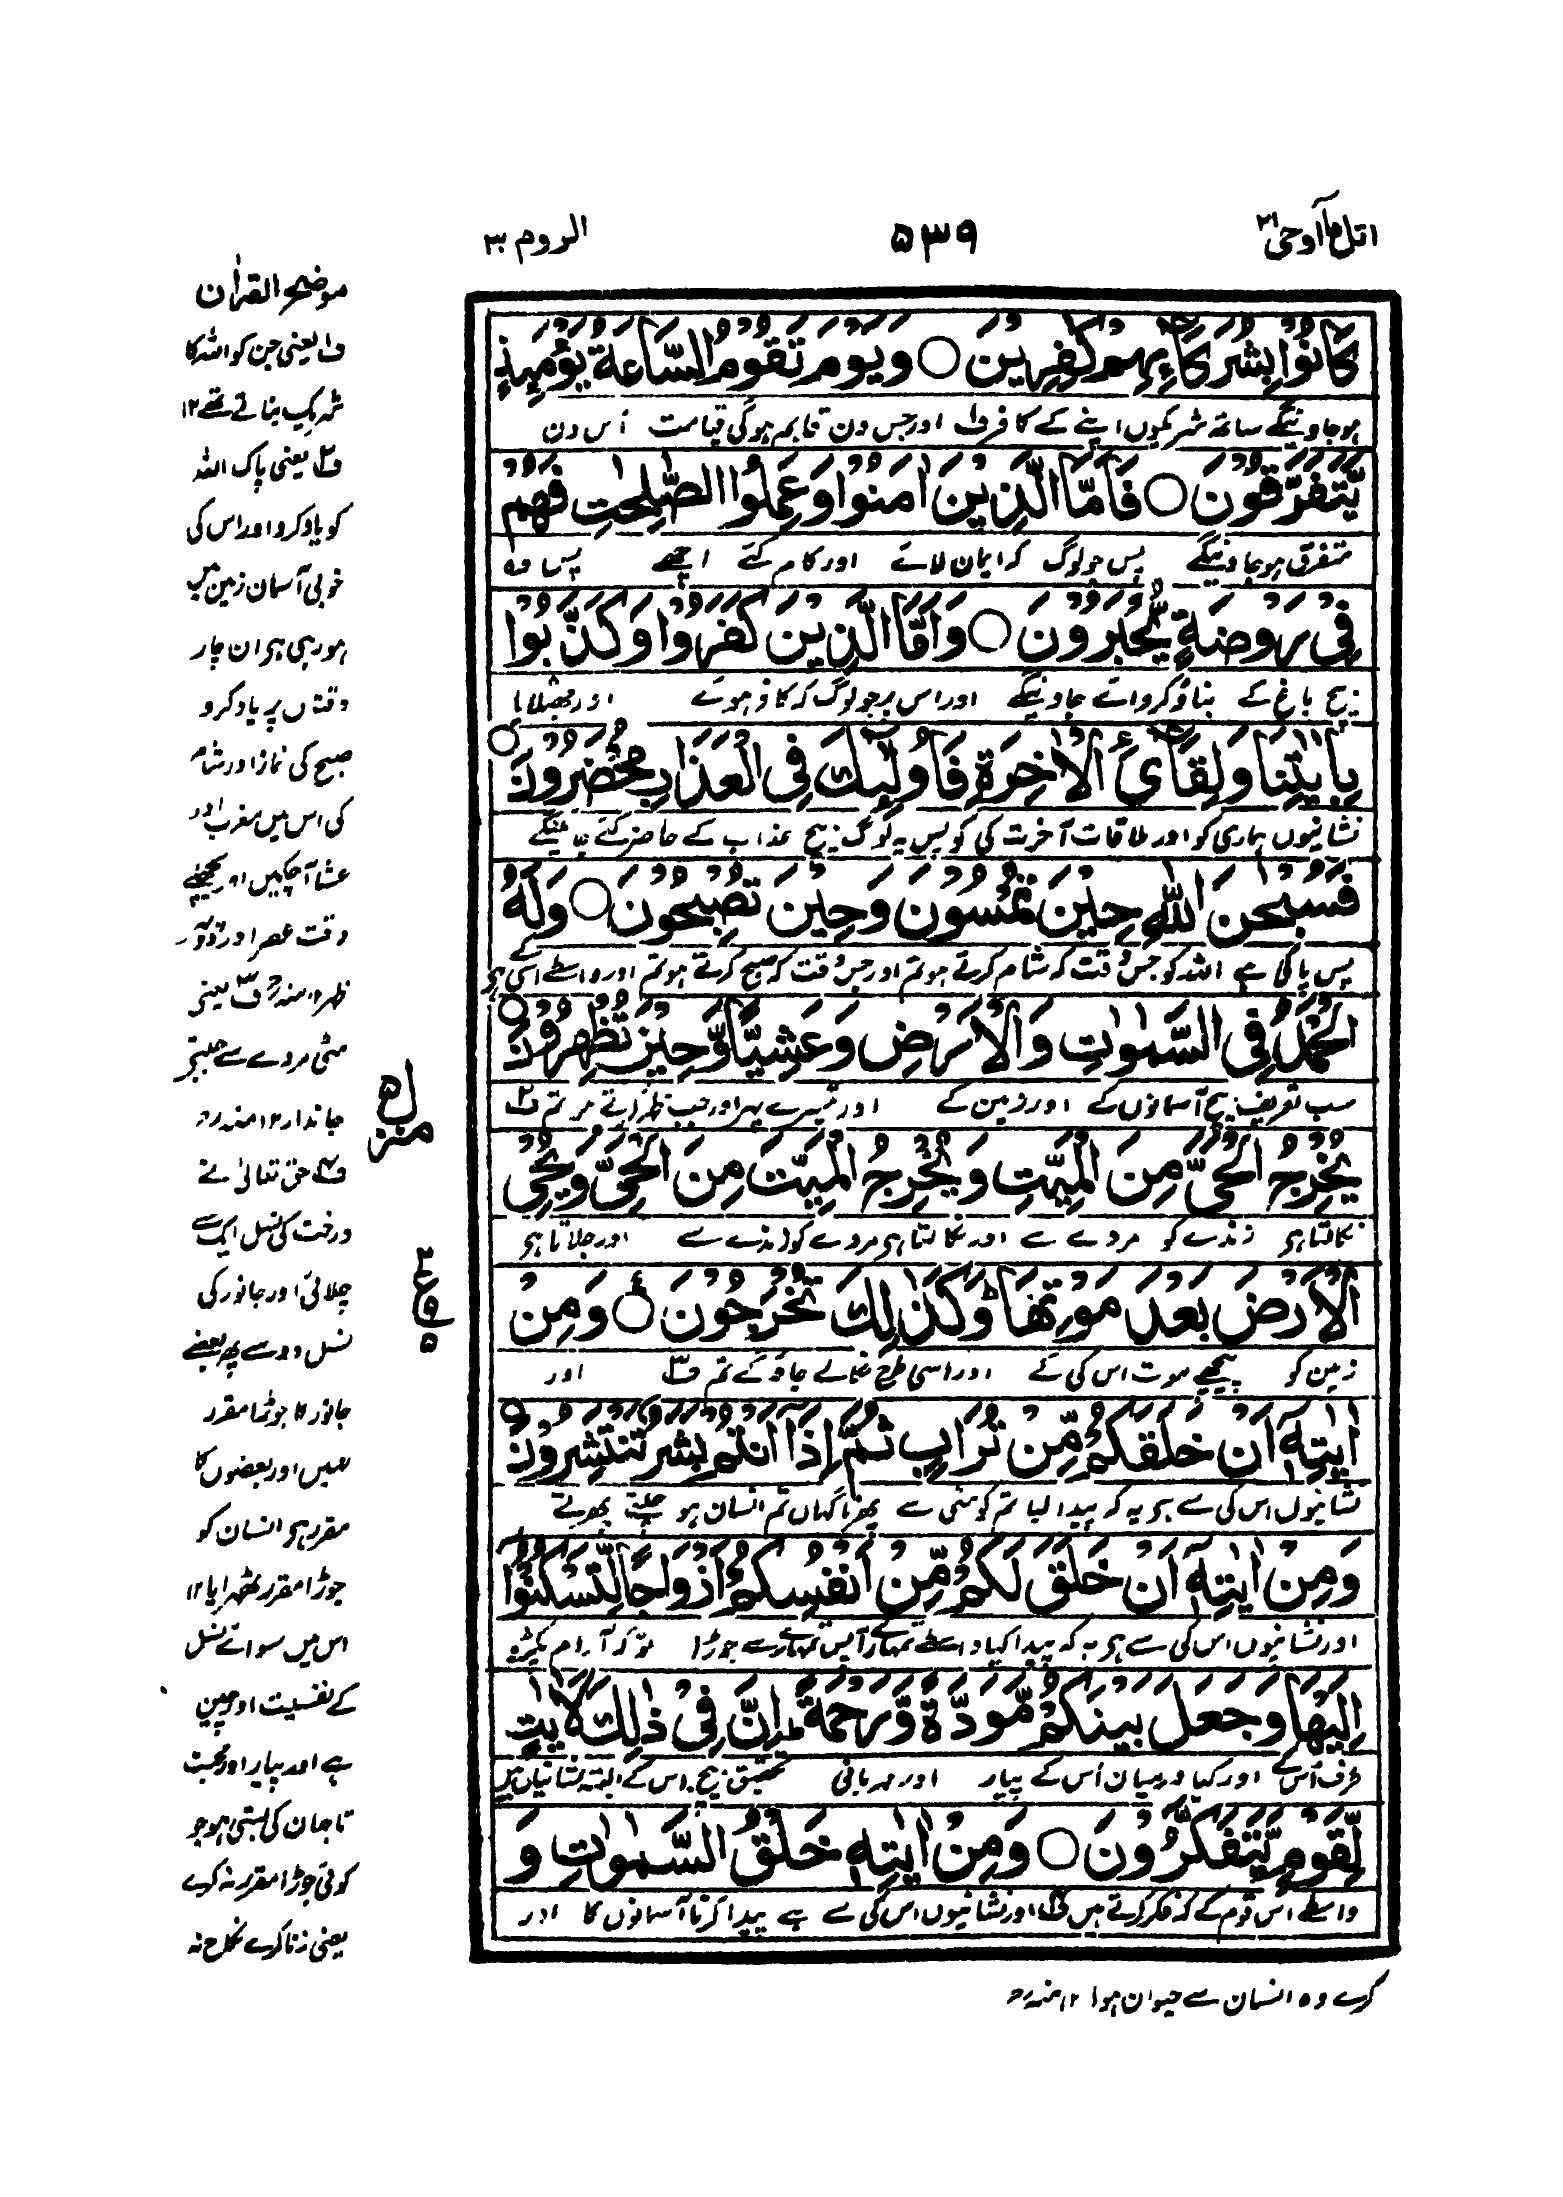 اتل مآ اوحی ۲۱
۵۳۹
الروم ۳۰
كَانُوْا بِشُرَكَآئِهِمْ كٰفِرِيْنَ ○ وَيَوْمَ تَقُوْمُ السَّاعَةُ يَوْمَئِذٍ
ہوجاوینگے ساتھ شریکوں اپنے کے کافر ف۱ اور جس دن قایم ہوگی قیامت اُس دن
يَّتَفَرَّقُوْنَ ○ فَاَمَّا الَّذِيْنَ اٰمَنُوْا وَعَمِلُوا الصّٰلِحٰتِ فَهُمْ
متفرق ہوجاوینگے پس جو لوگ کہ ایمان لائے اور کام کئے اچھے پس وہ
فِيْ رَوْضَةٍ يُّحْبَرُوْنَ ○ وَاَمَّا الَّذِيْنَ كَفَرُوْا وَكَذَّبُوْا
بیچ باغ کے بناؤ کروائے جاوینگے اور اس پر جو لوگ کہ کافر ہوئے اور جھٹلایا
بِاٰيٰتِنَا وَلِقَآئِ الْاٰخِرَةِ فَاُولٰٓئِكَ فِي الْعَذَابِ مُحْضَرُوْنَ ○
نشانیوں ہماری کو اور ملاقات آخرت کی کو پس یہ لوگ بیچ عذاب کے حاضر کئے جاوینگے
فَسُبْحٰنَ اللّٰهِ حِيْنَ تُمْسُوْنَ وَحِيْنَ تُصْبِحُوْنَ ○ وَلَهُ
پس پاکی ہے اللہ کو جس وقت کہ شام کرتے ہو تم اور جس وقت کہ صبح کرتے ہو تم اور واسطے اسی کے ہی
الْحَمْدُ فِي السَّمٰوٰتِ وَالْاَرْضِ وَعَشِيًّا وَّحِيْنَ تُظْهِرُوْنَ ○
سب تعریف بیچ آسمانوں کے اور زمین کے اور تیسرے پہر اور جب ظہر کرتے ہو تم ف۲
يُخْرِجُ الْحَيَّ مِنَ الْمَيِّتِ وَيُخْرِجُ الْمَيِّتَ مِنَ الْحَيِّ وَيُحْيِ
نکالتا ہی زندے کو مردے سے اور نکالتا ہی مردے کو زندے سے اور جلاتا ہی
الْاَرْضَ بَعْدَ مَوْتِهَا ؕ وَكَذٰلِكَ تُخْرَجُوْنَ ○ وَمِنْ
زمین کو پیچھے موت اس کی کے اور اسی طرح نکالے جاؤ گے تم ف۳ اور
اٰيٰتِهٖٓ اَنْ خَلَقَكُمْ مِّنْ تُرَابٍ ثُمَّ اِذَآ اَنْتُمْ بَشَرٌ تَنْتَشِرُوْنَ ○
نشانیوں اس کی سے ہی یہ کہ پیدا کیا تم کو مٹی سے پھر ناگہاں تم انسان ہو چلتے پھرتے
وَمِنْ اٰيٰتِهٖٓ اَنْ خَلَقَ لَكُمْ مِّنْ اَنْفُسِكُمْ اَزْوَاجًا لِّتَسْكُنُوْٓا
اور نشانیوں اس کی سے ہی یہ کہ پیدا کیا واسطے تمہارے آپس تمہارے سے جوڑا تو کہ آرام پکڑو
اِلَيْهَا وَجَعَلَ بَيْنَكُمْ مَّوَدَّةً وَّرَحْمَةً ؕ اِنَّ فِيْ ذٰلِكَ لَاٰيٰتٍ
طرف اُس کے اور کیا درمیان اُس کے پیار اور مہربانی تحقیق بیچ اس کے البتہ نشانیاں ہیں
لِّقَوْمٍ يَّتَفَكَّرُوْنَ ○ وَمِنْ اٰيٰتِهٖ خَلْقُ السَّمٰوٰتِ وَ
واسطے اس قوم کے کہ فکر کرتے ہیں ف۴ اور نشانیوں اس کی سے ہے پیدا کرنا آسمانوں کا اور
موضح القراٰن
ف۱ یعنی جن کو اللہ کا
شریک بناتے تھے ۱۲
ف۲ یعنی پاک اللہ
کو یاد کرو اور اس کی
خوبی آسمان زمین میں
ہو رہی ہی ان چار
وقتوں پر یاد کرو
صبح کی نماز اور شام
کی اس میں مغرب اور
عشا آچکیں اور پچھلے
وقت عصر اور دوپہر
ظہر ۱۲ منہ رح ف۳ یعنی
مٹی مردے سے جیتے
جاندار ۱۲ منہ رح
ف۴ حق تعالیٰ نے
درخت کی نسل ایک سے
چلائی اور جانور کی
نسل دو سے پھر بعضے
جانور کا جوڑا مقرر
نہیں اور بعضوں کا
مقرر ہی انسان کو
جوڑا مقرر ٹھہرایا ۱۲
اس میں سوائے نسل
کے نفسیت اور چین
ہے اور پیار اور محبت
تا جہان کی بستی ہو جو
کوئی جوڑا مقرر نہ کرے
یعنی زنا کرے نکاح نہ
کرے وہ انسان سے حیوان ہوا ۱۲ منہ رح
منزل ۵
۲
ع
۹
۵